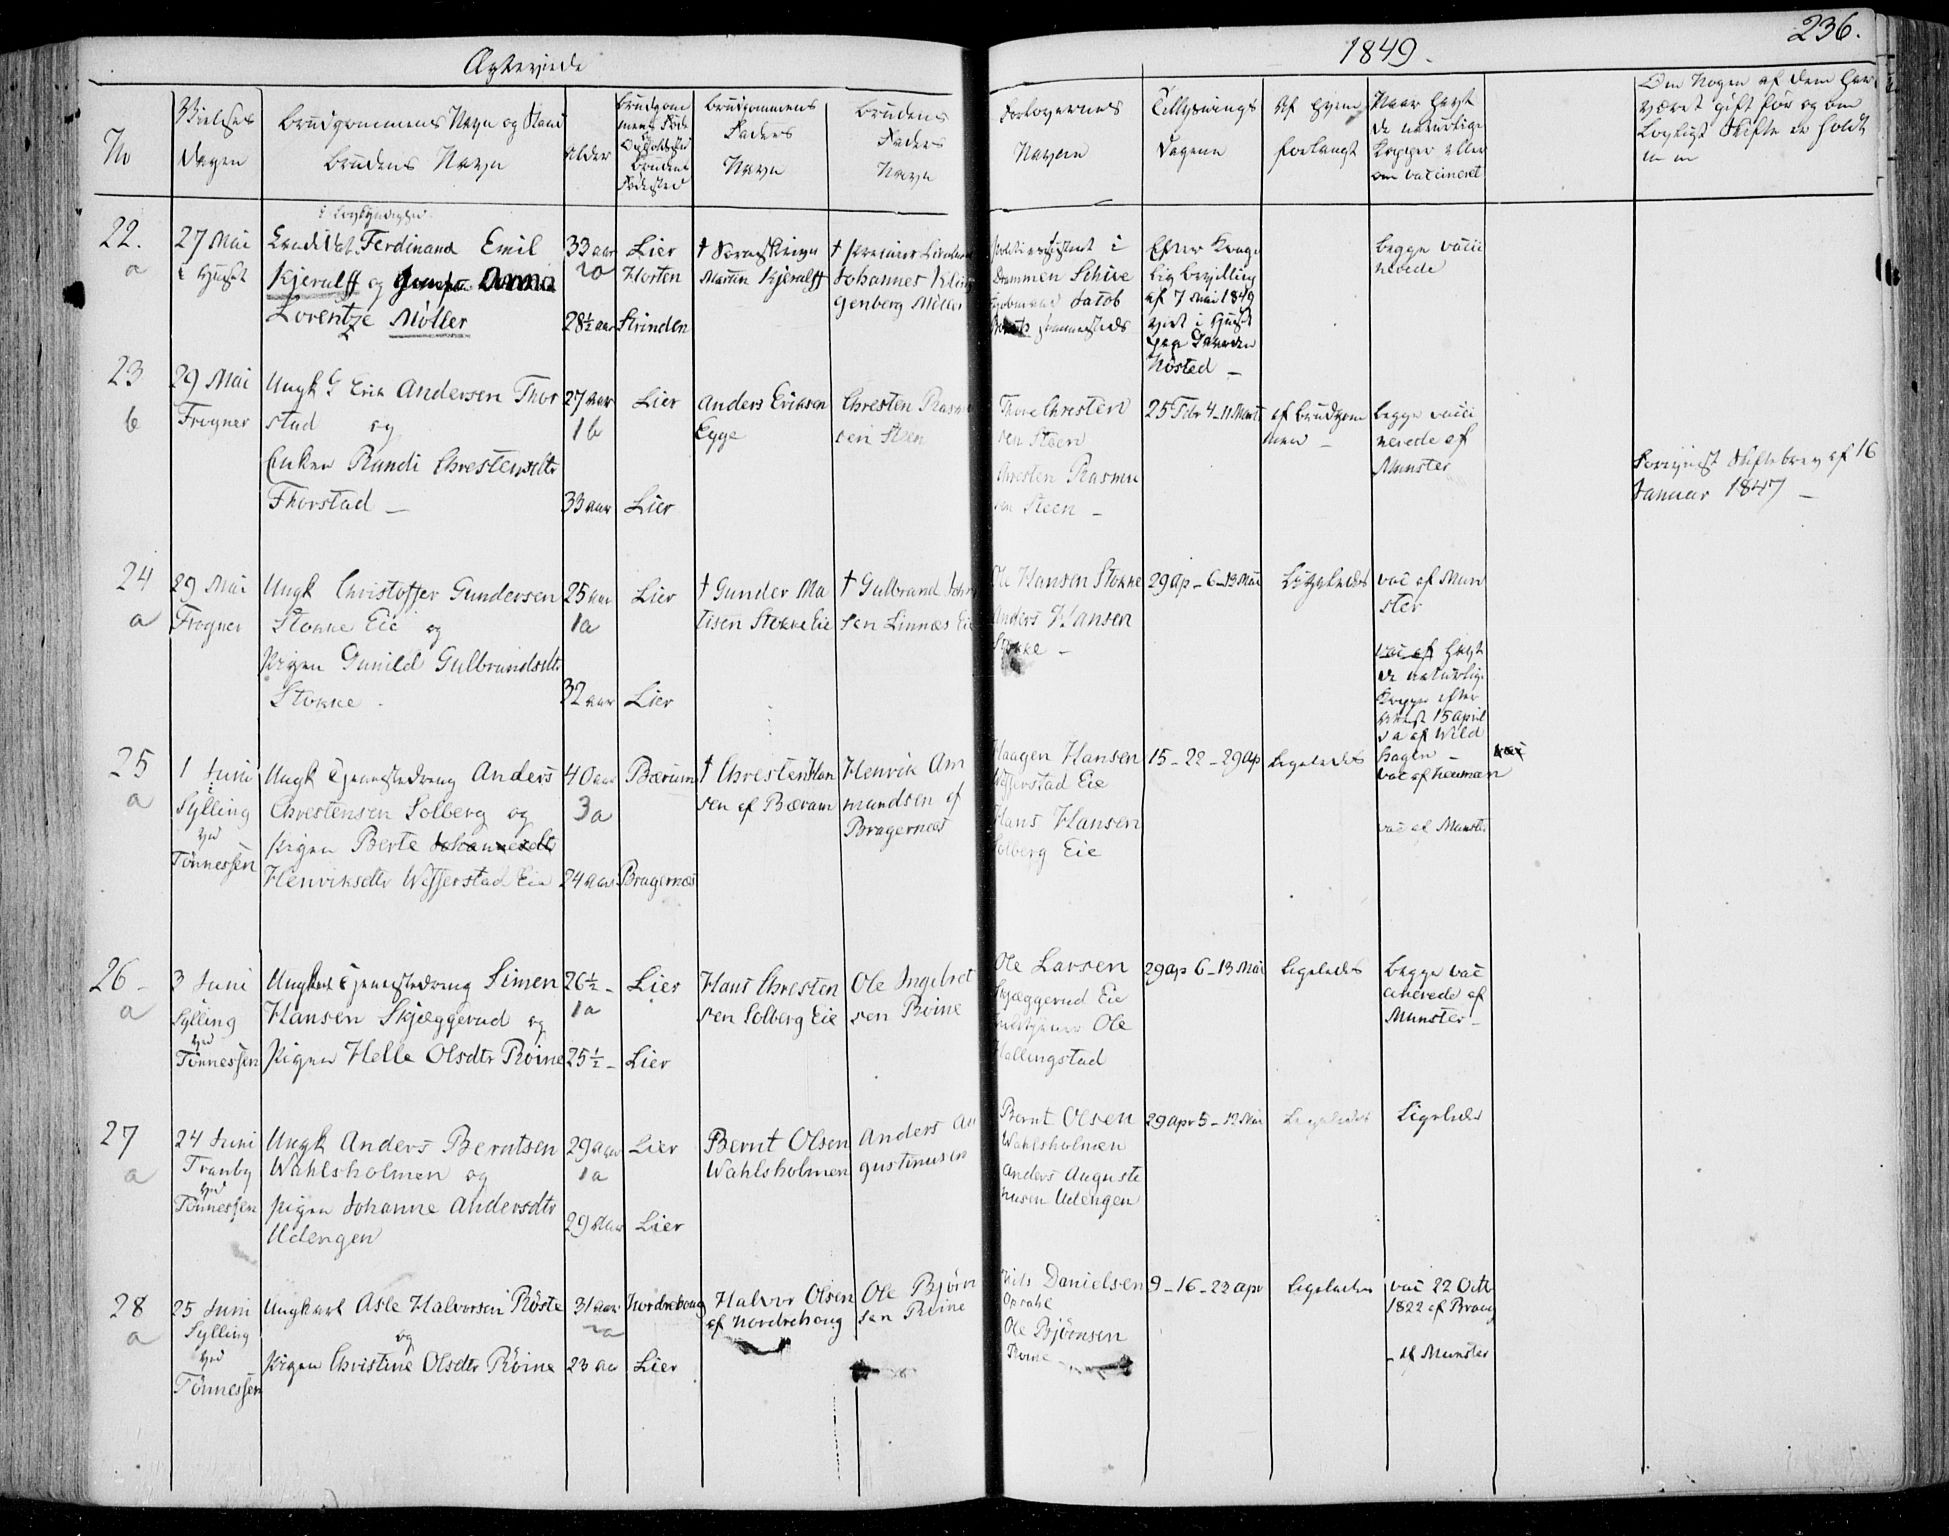 236.
Ægteviede
1849.
No
Vielses
dagen
Brudgommens Navn og Stand
Brudens Navn
Alder
Brudgommens
Faders
Navn
Brudens
Faders
Navn
Forlovernes
Navne
Tillysnings
Dagene
Af hvem
forlangt
Naar havt
de naturlige
Kopper eller
om vaccineret
Om Nogen af dem har
været gift før og om
lovligt Skifte er holdt
22.
a
27 Mai
i Huset
Ferdinand Emil
Kjerulff og Anna
Lorentze Møller
33 aar
28½ aar
Lier
Horten
Strinden
Morten Kjerulff
Johannes Klin
genberg Møller
Drammen Schive
Jacob
af 7 Mai 1849
viet i Huset
paa Gaarden
Nøsted
Begge vacci
nerede
23
b
29 Mai
Frogner
Ungk G Erik Andersen Thor
stad og
Enken Randi Chrestensdtr
Thorstad
27 aar
1b
33 aar
Lier
Lier
Anders Eriksen
Egge
Chresten Rasmu
sen Steen
Thore Chresten
sen Steen
Chresten Rasmu
sen Steen
25 Febr 4-11 Marts
af Brudgom
men
begge vacci
nerede af
Munster
Foreviist Skiftebrev af 16
Januar 1847
24
a
29 Mai
Frogner
Ungk Christoffer Gundersen
Stokke Eie og
Pigen Gunild Gulbrandsdtr
Stokke
25 aar
1a
32 aar
Lier
Lier
† Gunder Ma
tisen Stokke Eie
† Gulbrand
sen Linnes Eie
Ole Hansen Stokke
Anders Hansen
Stokke
29 Ap - 6-13 Mai
Ligeledes
vac af Mun
ster
vac af havt
de naturlige
Kopper efter
Attest 15 April
af Wild
hagen
25
a
1 Juni
Sylling
ved
Tønnessen
Ungk Tjenestedreng Anders
Chrestensen Solberg og
Pigen Berte Johannesdtr
Henriksdtr Wefferstad Eie
40 aar
3a
24 aar
Bærum
Bragernæs
† Chresten Han
sen af Bærum
Henrik Am
mundsen af
Bragernæs
Haagen Hansen
Wefferstad Eie
Hans Hansen
Solberg Eie
15-22-29 Ap
Ligeledes
vac af Neuman
vac af Munster
26
a
3 Juni
Sylling
ved
Tønnessen
Ungkarl Tjenestedreng Simen
Hansen Skjæggerud og
Pigen Helle Olsdtr Røine
26½
1a
25½
Lier
Lier
Hans Chresten
sen Solberg Eie
Ole Ingebret
sen Røine
Ole Larsen
Skjæggerud Eie
Ole
Hallingstad
29 Ap 6-13 Mai
Ligeledes
Begge vac
cinerede af
Munster
27
a
24 Juni
Tranby
ved
Tønnessen
Ungk Anders Berntsen
Wahlsholmen og
Pigen Johanne Andersdtr
Udengen
29 aar
1a
29 aar
Lier
Lier
Bernt Olsen
Wahlsholmen
Anders Au
gustinusen
Bernt Olsen
Wahlsholmen
Anders Augusti
nusen Udengen
29 Apr 5-12 Mai
Ligeledes
Ligeledes
28
a
25 Juni
Sylling
ved
Tønnessen
Ungkarl Asle Halvorsen Røste
og
Pigen Christine Olsdtr Røine
31 aar
23 aar
Nordrehoug
Lier
Halvor Olsen
af Nordrehoug
Ole Bjørn
sen Røine
Nils Danielsen
Opsahl
Ole Bjørnsen
Røine
9-16-22 Apr
Ligeledes
vac 22 Octb
1822 af Broug
af Munster